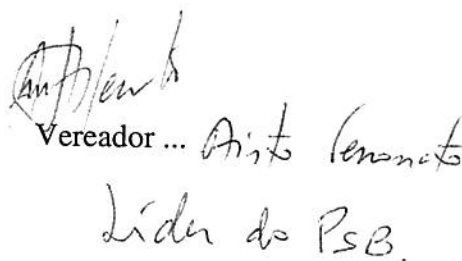 Vereador ... Airto Ferronato
Líder do PSB.